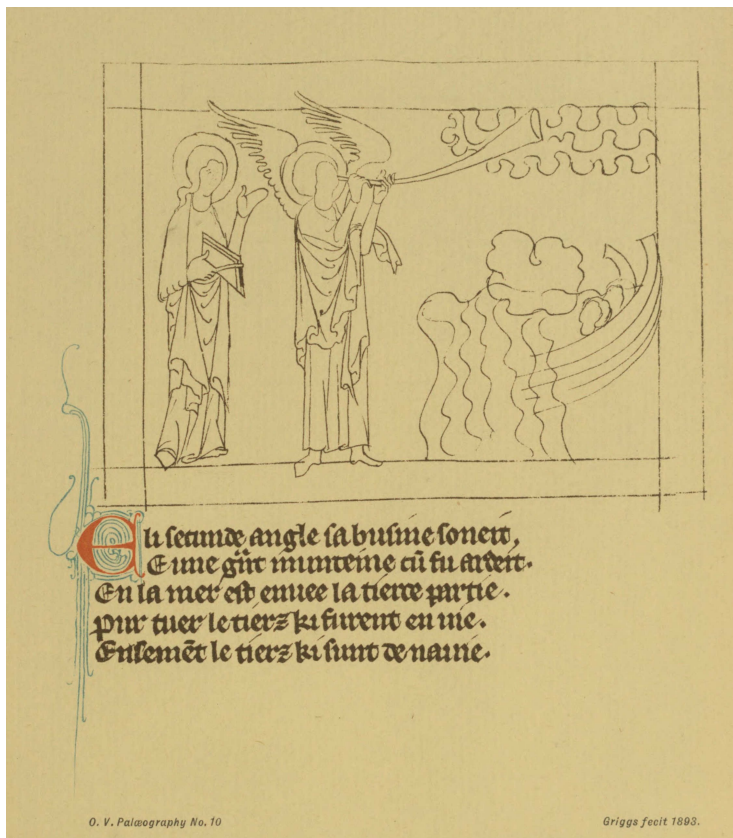 E li secunde angle sa busine soneit,
E une g̃nt munteine cũ fu ardeit.
En la mer est enuee la tierce partie.
Pur tuer le tierz ki furent en uie.
Ensemẽt le tierz ki sunt de nauie.
O. V. Palæography No. 10
Griggs fecit 1893.